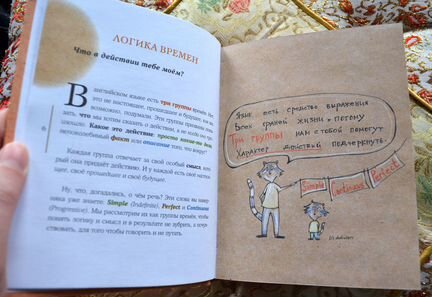 ЛОГИКА ВРЕМЕН
Что в действии тебе моём?
В английском языке есть три группы времён. Нет,
это не настоящее, прошедшее и будущее, как вы,
возможно, подумали. Эти группы призваны пока-
зать, что мы хотим сказать о действии, а не когда оно про-
изошло. Какое это действие: просто какое-то дело,
непоколебимый факт или описание того, что вокруг?
Каждая группа отвечает за свой особый смысл, кото-
рый она придаёт действию. И у каждой есть своё настоя-
щее, своё прошедшее и своё будущее.
Ну, что, догадались, о чём речь? Эти слова вы навер-
няка уже знаете: Simple (Indefinite), Perfect и Continuous
(Progressive). Мы рассмотрим их как группы времён, чтобы
понять логику и смысл и в результате не зубрить, а почув-
ствовать, для того чтобы говорить и не путать.
Язык есть средство выражения
Всех граней жизни и потому
Три группы нам с тобой помогут
Характер действий подчеркнуть.
Simple
Continuous
Perfect